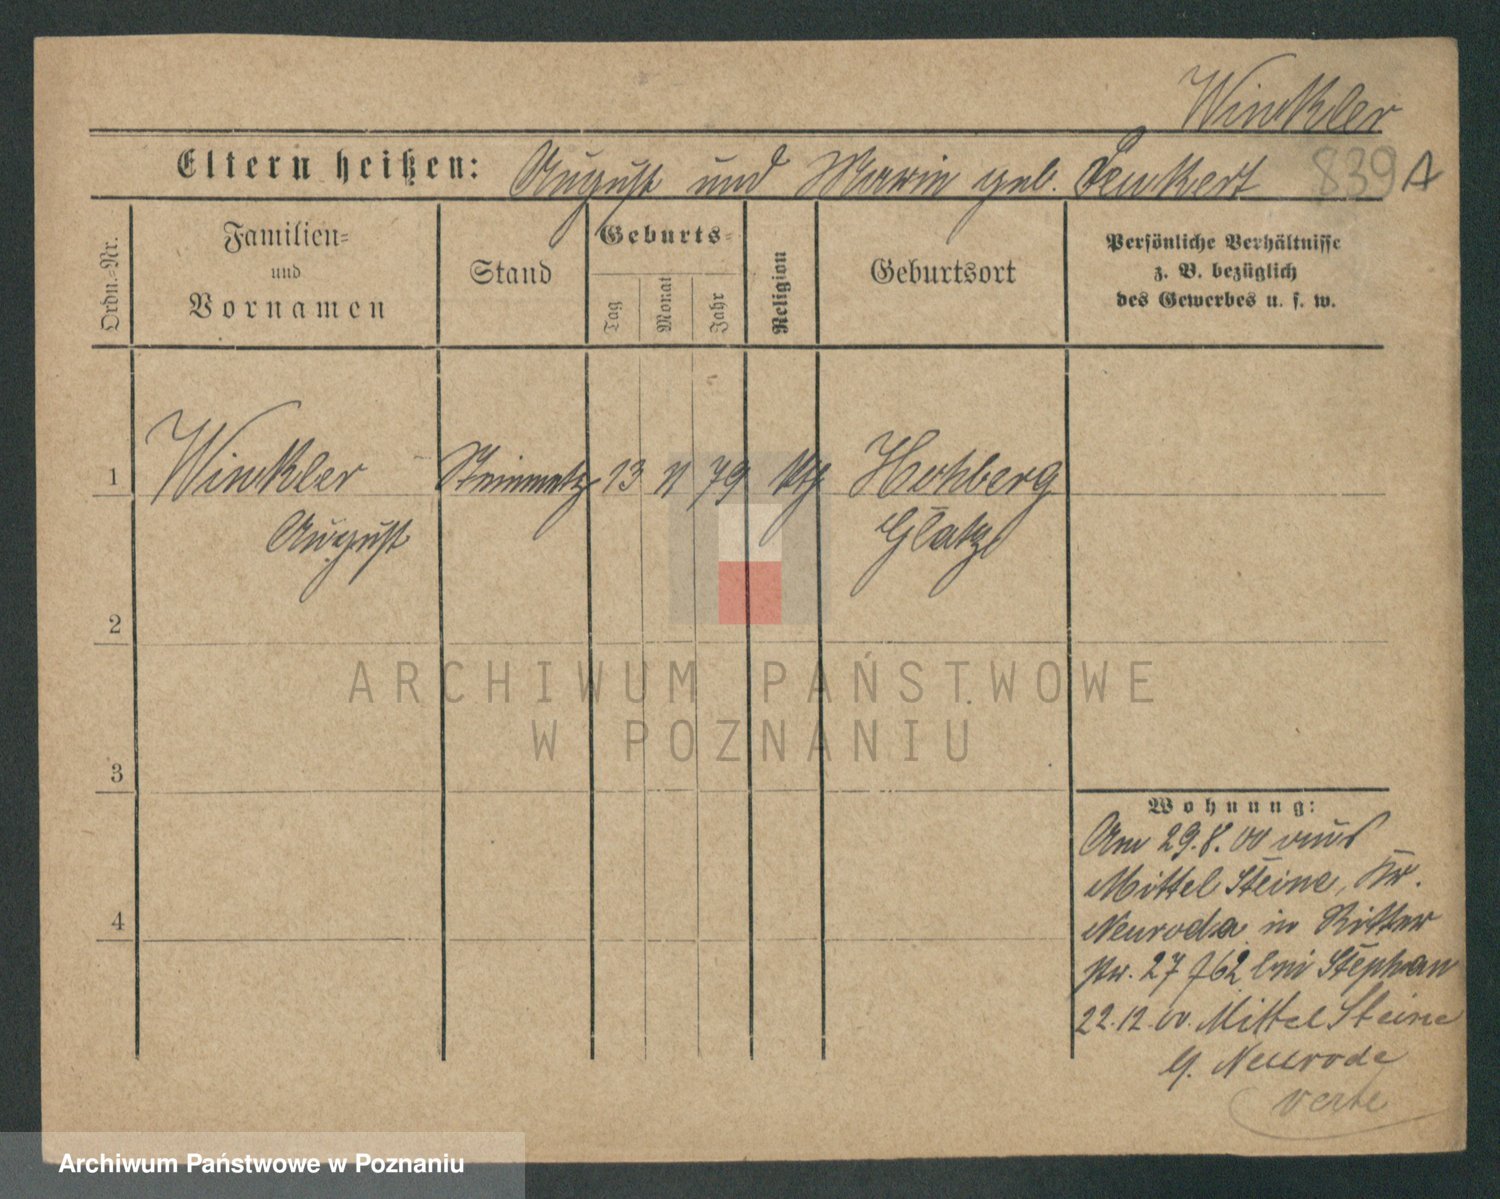 Winkler
Eltern heißen: August und Marie geb. 839 A
Ordn.=Nr.
Familien=
und
Vornamen
Stand
Geburts=
Tag
Monat
Jahr
Religion
Geburtsort
Persönliche Verhältnisse
z. B. bezüglich
des Gewerbes u. s. w.
1 Winkler Steinmetz 13 11 79 kth Hohberg
August Glatz
2
3
4
Wohnung:
Am 29.8.00 aus
Mittel Steine, Kr.
Neuroda in Ritter
str. 27 bei Stephan
22.12.00. Mittel Steine
b. Neurode
verte
ARCHIWUM PAŃSTWOWE
W POZNANIU
Archiwum Państwowe w Poznaniu